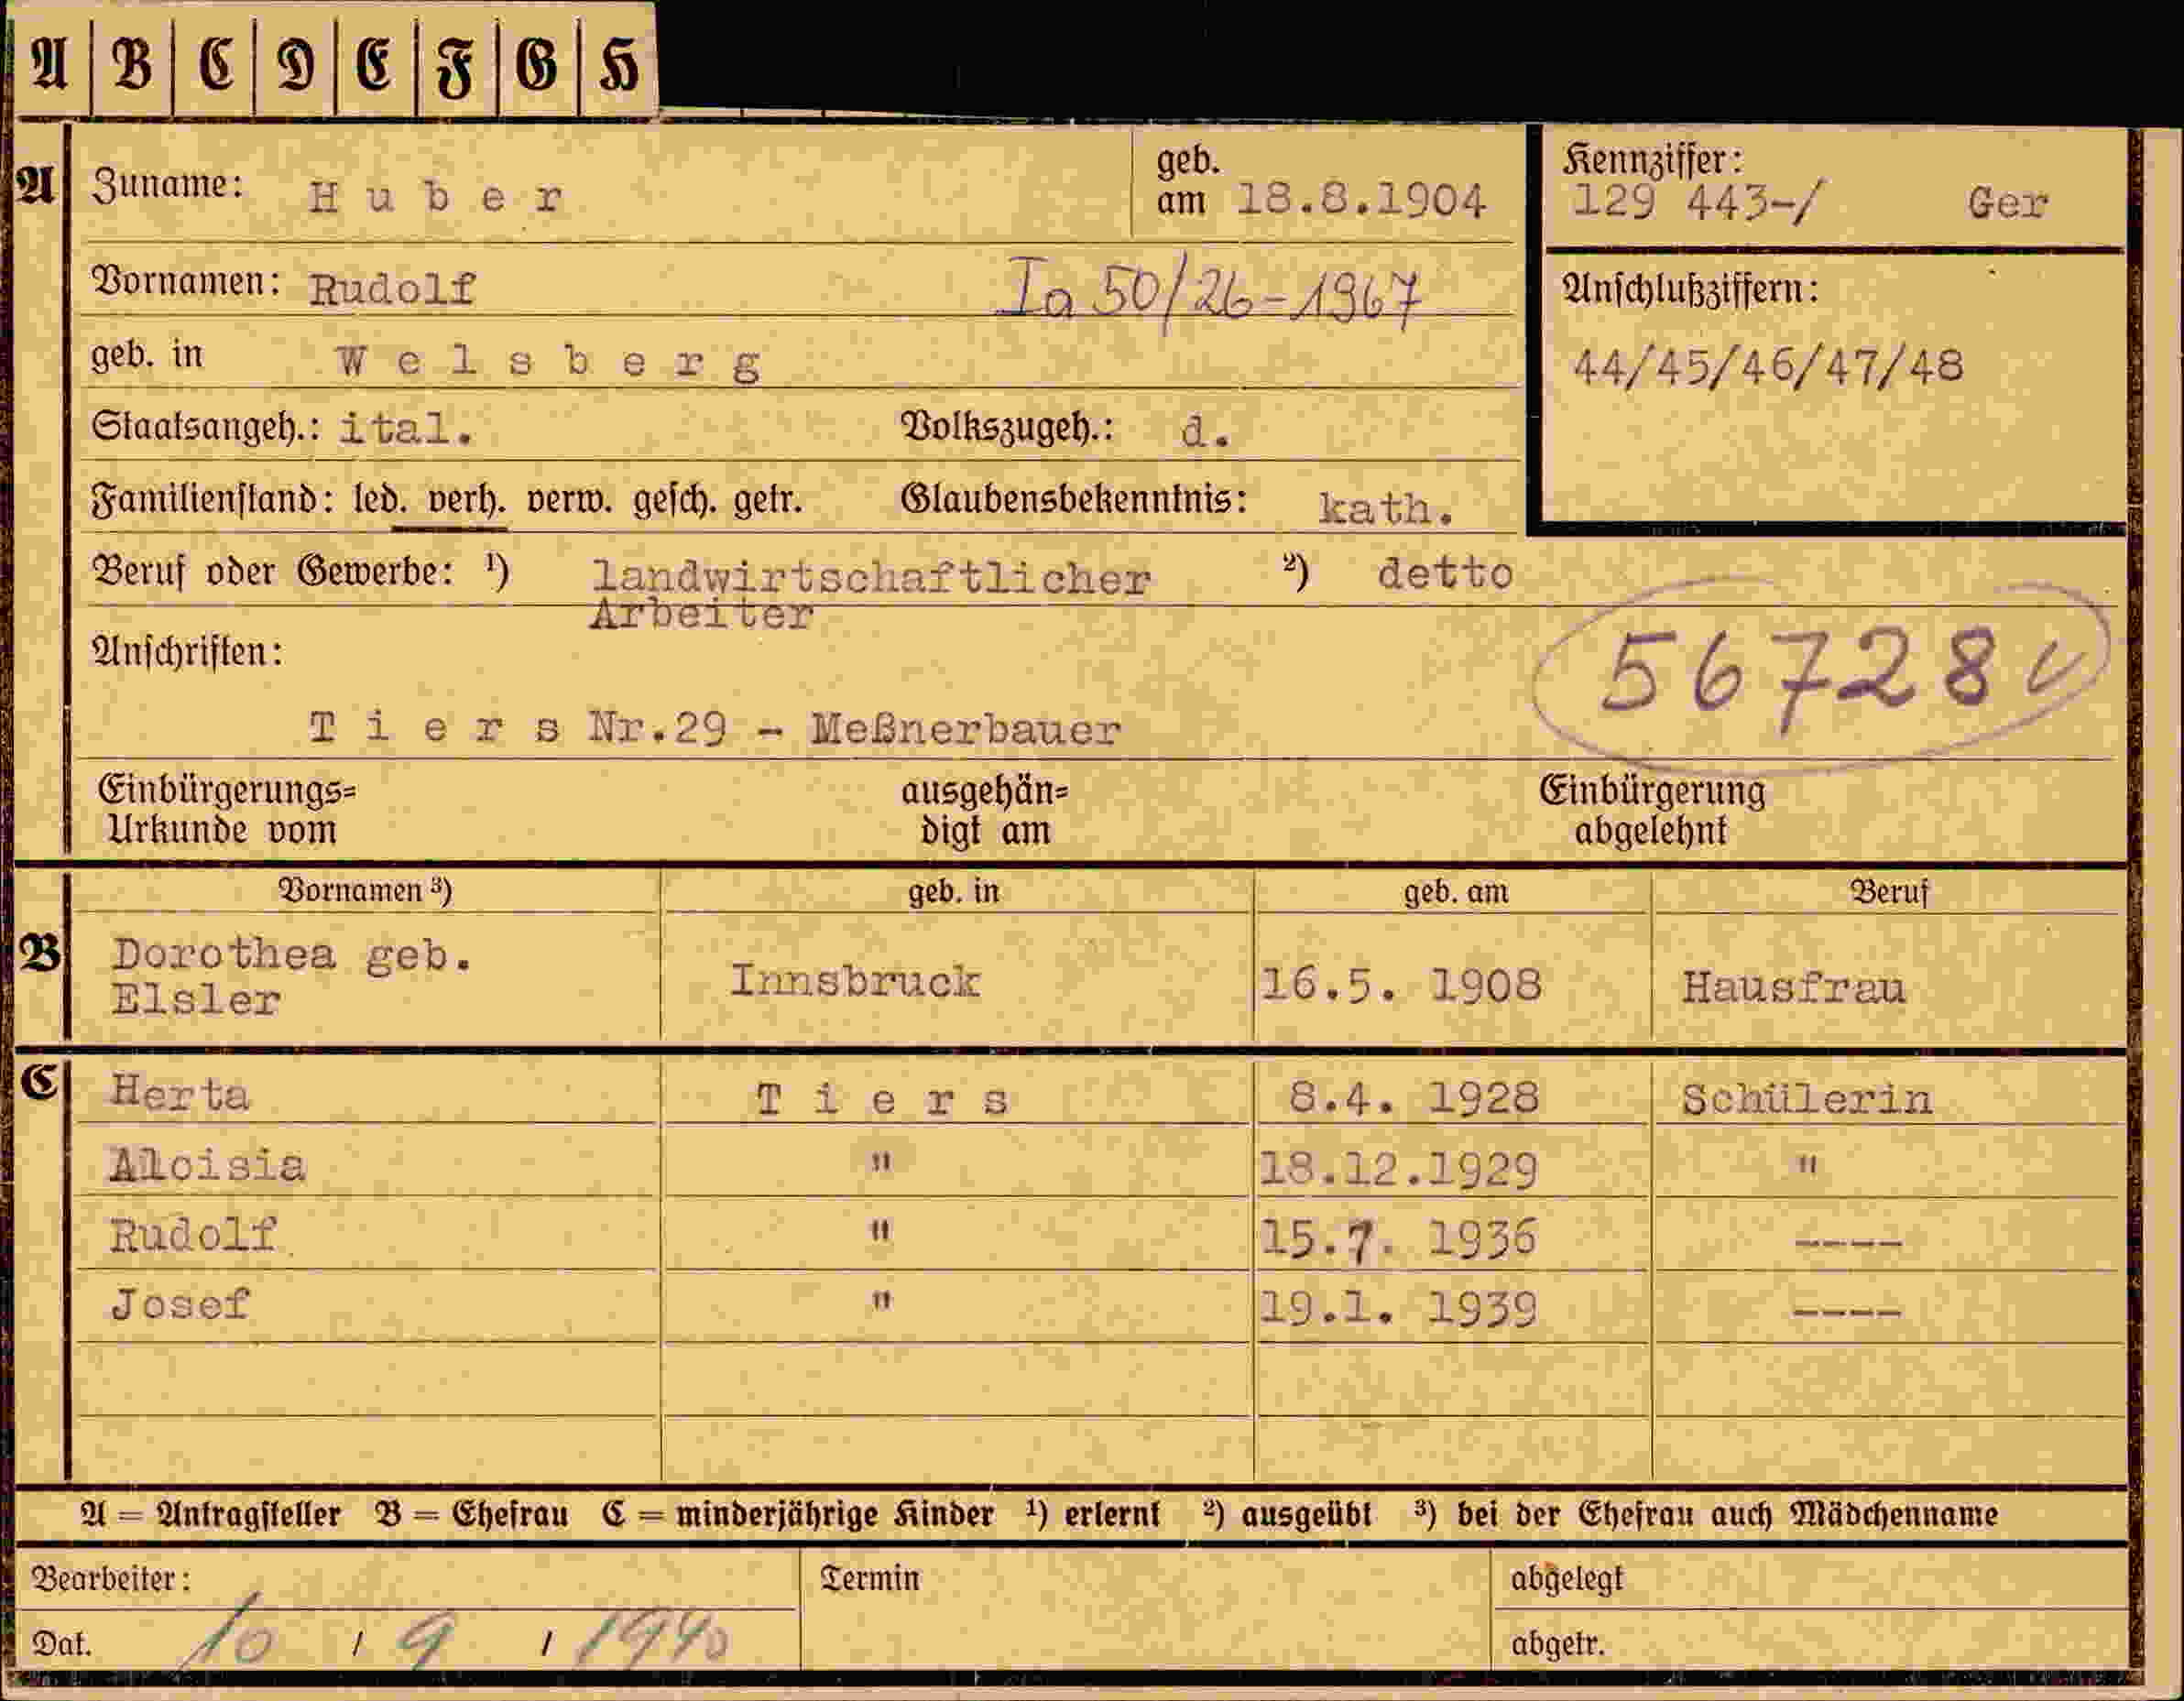 A B C D E F G H
A Zuname: H u b e r geb. am 18.8.1904
Kennziffer: 129 443-/ Ger
Vornamen: Rudolf Ia 50/26-1967
Anschlußziffern:
44/45/46/47/48
geb. in W e l s b e r g
Staatsangeh.: ital. Volkszugeh.: d.
Familienstand: led. verh. verw. gesch. getr. Glaubensbekenntnis: kath.
Beruf oder Gewerbe: ¹) landwirtschaftlicher Arbeiter ²) detto
56728
Anschriften:
T i e r s Nr.29 - Meßnerbauer
Einbürgerungs= Urkunde vom ausgehän= digt am Einbürgerung abgelehnt
Vornamen ³) geb. in geb. am Beruf
B Dorothea geb. Elsler Innsbruck 16.5. 1908 Hausfrau
C Herta T i e r s 8.4. 1928 Schülerin
Aloisia " 18.12.1929 "
Rudolf " 15.7. 1936 ----
Josef " 19.1. 1939 ----
A = Antragsteller B = Ehefrau C = minderjährige Kinder ¹) erlernt ²) ausgeübt ³) bei der Ehefrau auch Mädchenname
Bearbeiter: Termin abgelegt
Dat. 10 / 9 / 1940 abgetr.